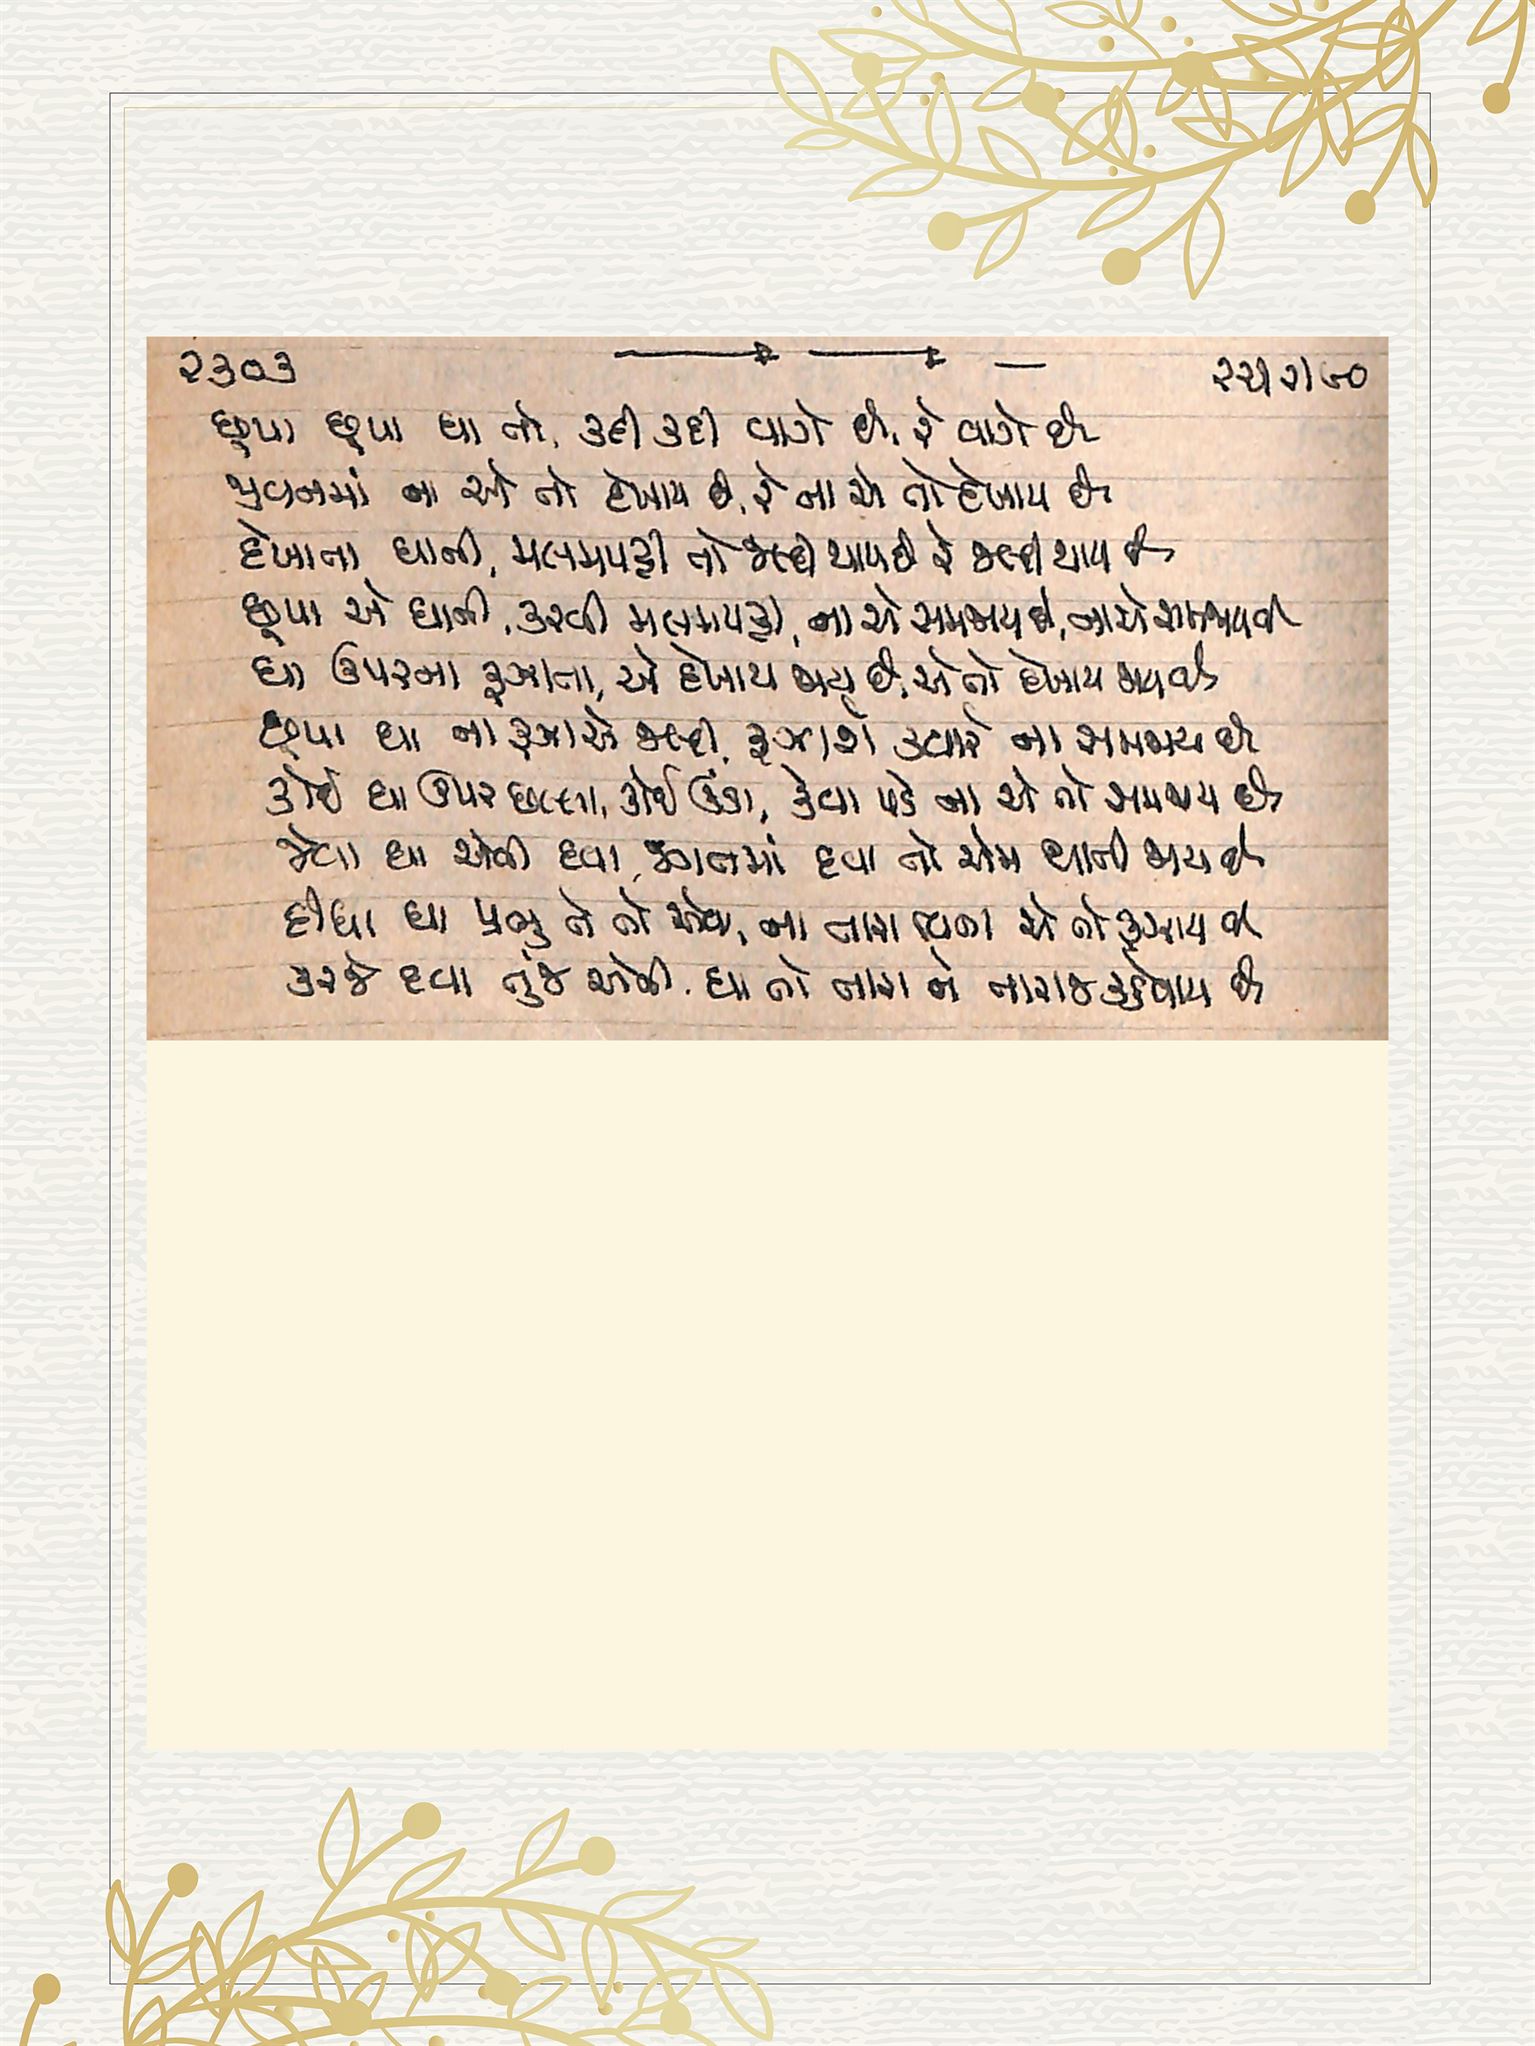 ૨૩૦૩
છૂપા છૂપા ઘા તો, કદી કદી વાગે છે, રે વાગે છે
જીવનમાં ના એ તો દેખાય છે, રે ના એ તો દેખાય છે
દેખાતા ઘાની, મલમપટ્ટી તો જલ્દી થાય છે રે જલ્દી થાય છે
છૂપા એ ઘાની, કરવી મલમપટ્ટી, ના એ સમજાય છે, ના એ સમજાય છે
ઘા ઉપરના રૂઝાતા, એ દેખાય જાય છે, એ તો દેખાય જાય છે
છૂપા ઘા ના રૂઝાએ જલ્દી, રૂઝાશે ક્યારે ના સમજાય છે
કોઈ ઘા ઉપર છલ્લા, કોઈ ઊંડા, કેવા પડે ના એ તો સમજાય છે
જેવા ઘા એવી દવા, જગતમાં દવા તો એમ થાતી જાય છે
દીધા ઘા પ્રભુ તે તો એવા, ના તારા વિના એ તો રૂઝાય છે
કરજે દવા તુંજ એની. ઘા તો તારા ને તારાજ કહેવાય છે